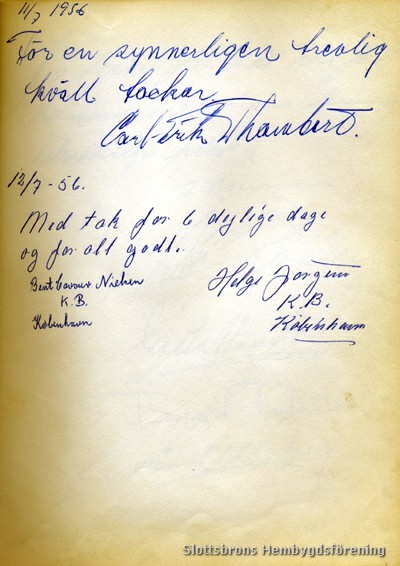 11/7 1956
För en synnerligen trevlig
kväll tackar
Carl-Erik Thambert.
12/7-56.
Med tak for 6 dejlige dage
og for alt godt.
Bent Cavour Nielsen
K.B.
København
Helge
K.B.
København
Slottsbrons Hembygdsförening